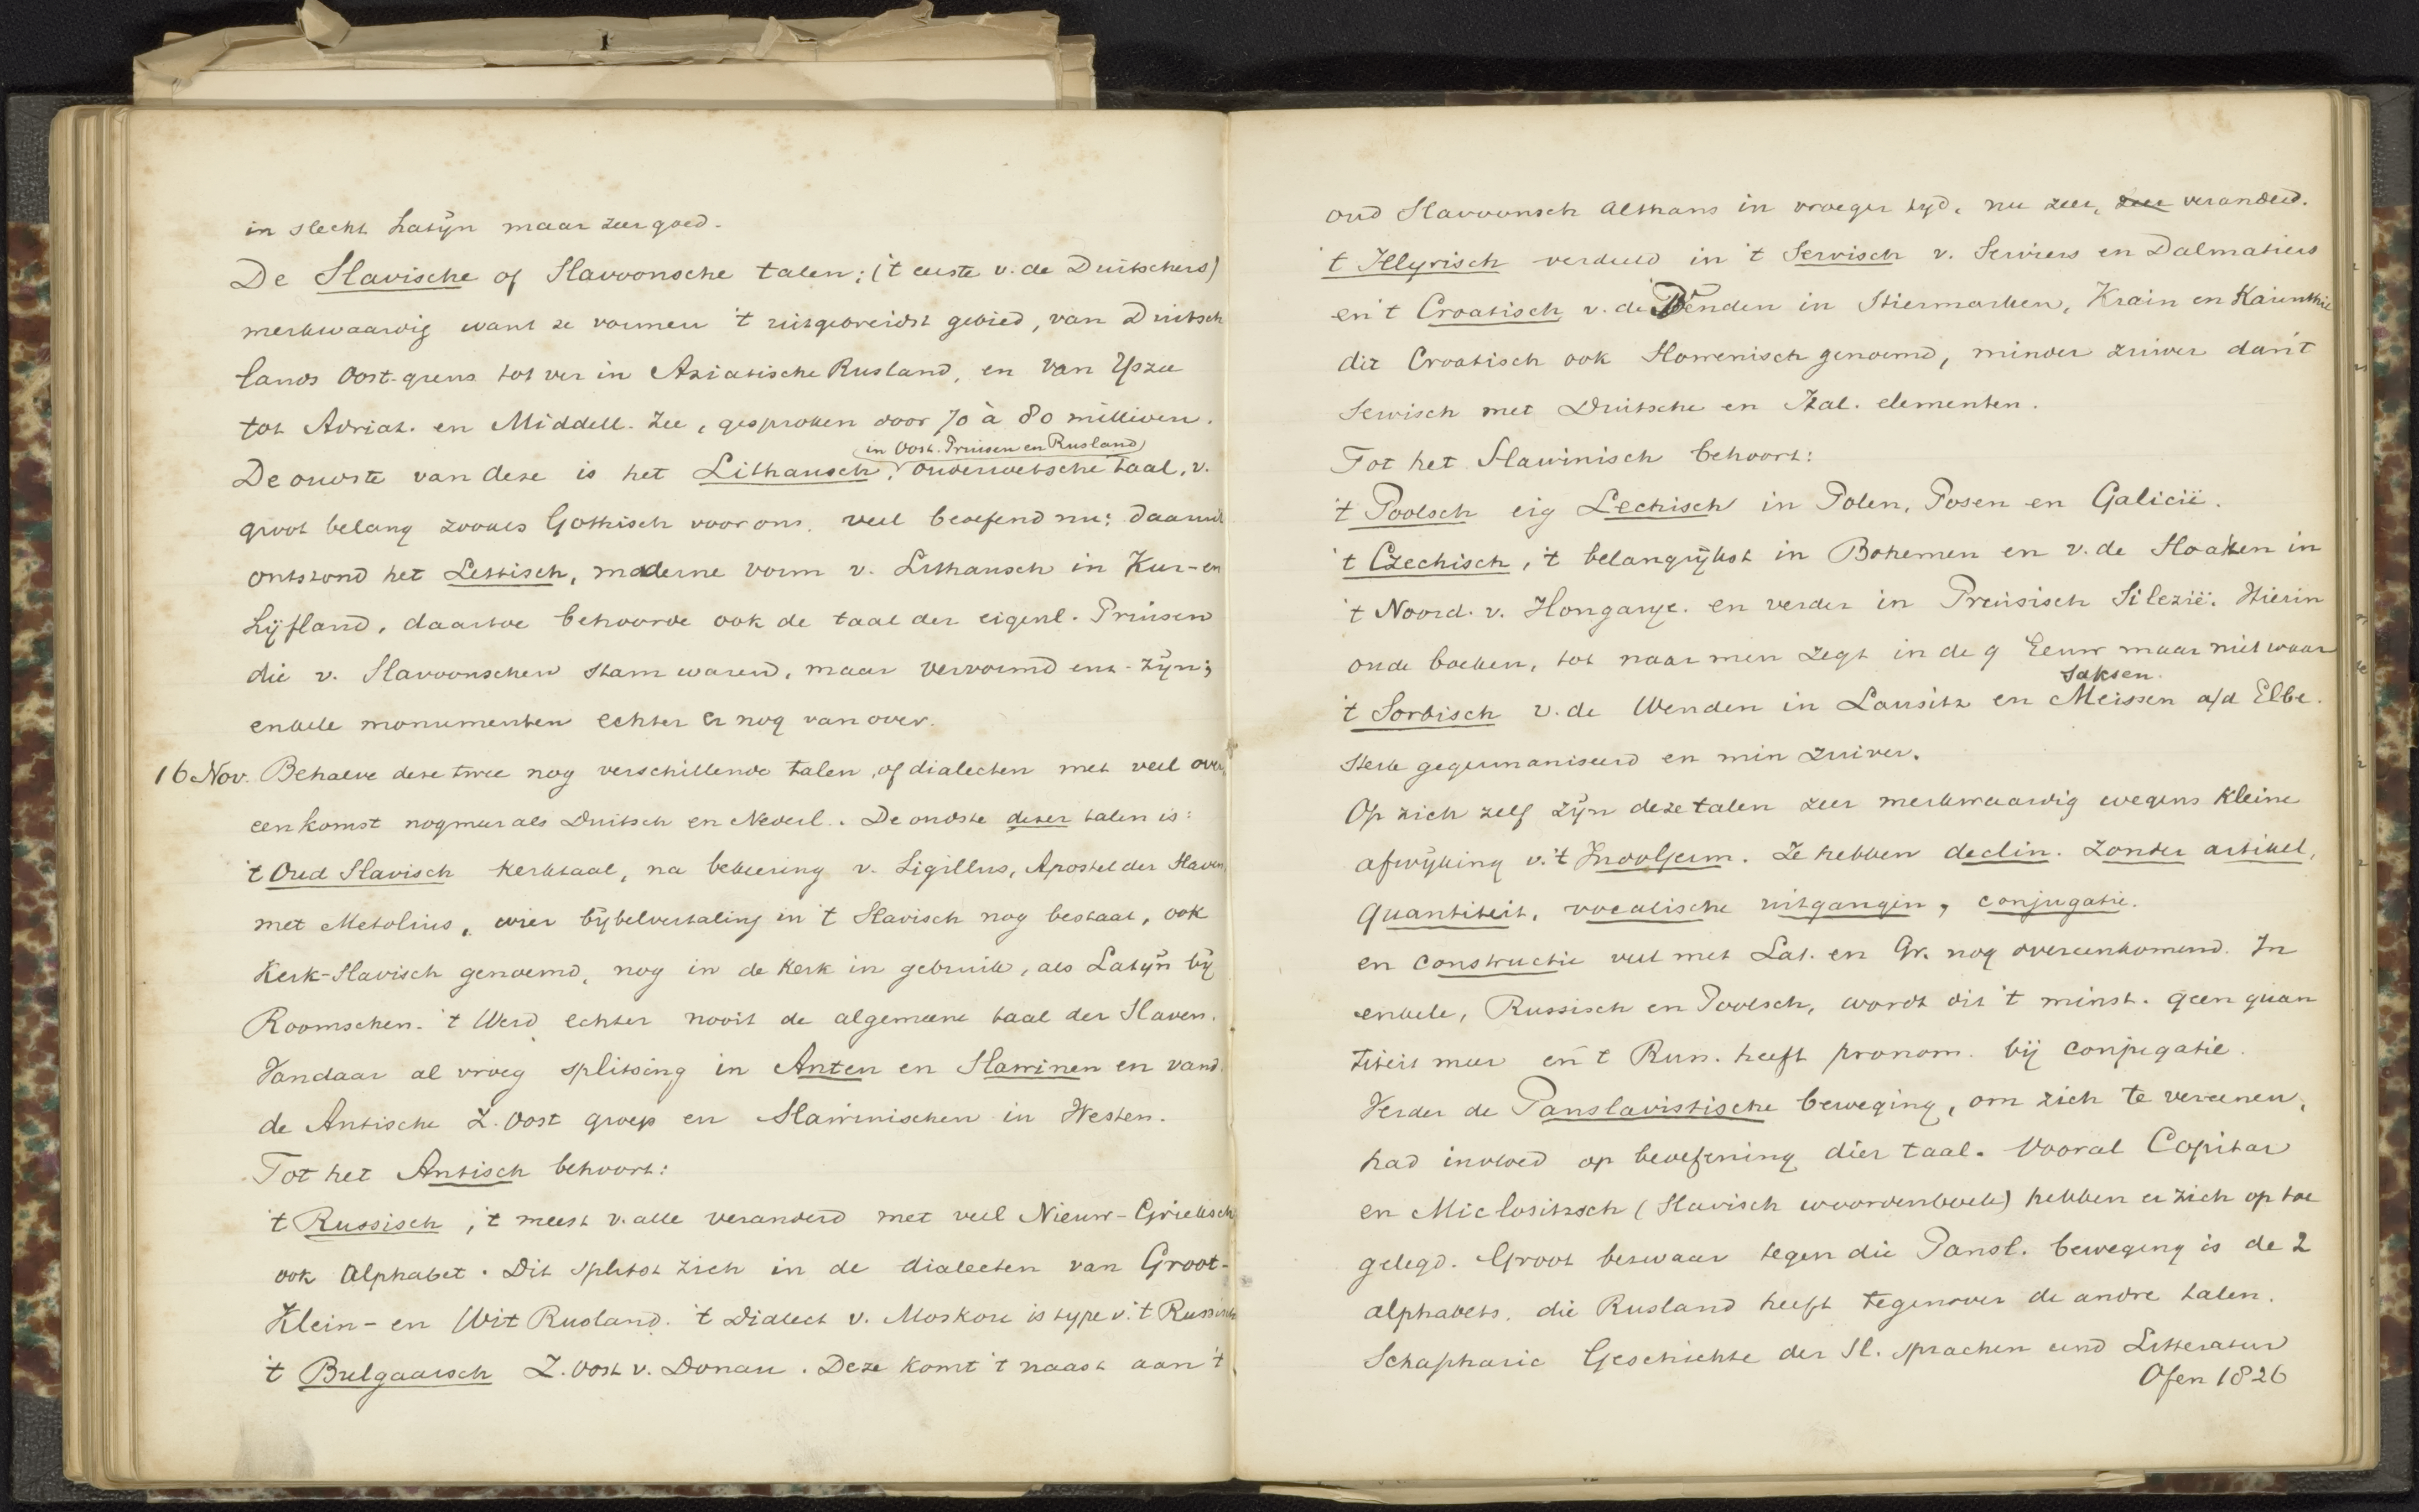 in slecht Latijn maar zeer goed.
De Slavische of Slavoonsche talen: ('t eerste v. de Duitschers)
merkwaardig want ze vormen 't uitgebreidst gebied, van Duitsch
lands Oost-grens tot ver in Aziatische Rusland, en van IJszee
tot Adriat. en Middell. Zee, gesproken door 70 à 80 millioen.
in Oost. Pruisen en Rusland
De oudste van deze is het Lithausch, ouderwetsche taal, v.
groot belang zooals Gothisch voor ons, veel beoefend nu; daaruit
ontstond het Lettisch, moderne vorm v. Lithausch in Kur- en
Lijfland, daartoe behoorde ook de taal der eigenl. Pruisen
die v. Slavoonschen stam waren, maar vervormd enz. zijn;
enkele monumenten echter er nog van over.
16 Nov. Behalve deze twee nog verschillende talen, of dialecten met veel over
eenkomst nog meer als Duitsch en Nederl. De oudste dezer talen is:
't Oud Slavisch kerktaal, na bekeering v. Sigillus, Apostel der Slaven,
met Metolius, wier bijbelvertaling in 't Slavisch nog bestaat, ook
Kerk-Slavisch genoemd, nog in de kerk in gebruik, als Latijn bij
Roomschen. 't Werd echter nooit de algemeene taal der Slaven.
Vandaar al vroeg splitsing in Anten en Slawinen en vand.
de Antische Z. Oost groep en Slawinischen in Westen.
Tot het Antisch behoort:
't Russisch, 't meest v. alle veranderd met veel Nieuw-Grieksch
ook Alphabet. Dit splitst zich in de dialecten van Groot-
Klein- en Wit Rusland. 't Dialect v. Moskou is type v. 't Russisch
't Bulgaarsch Z. Oost v. Donau. Deze komt 't naast aan 't
oud Slavoonsch althans in vroeger tijd, nu zeer, zeer veranderd.
't Illyrisch verdeeld in 't Servisch v. Serviers en Dalmatiers
en 't Croatisch v. de Wenden in Stiermarken, Krain en Karinthie
dit Croatisch ook Slowenisch genoemd, minder zuiver dan 't
Servisch met Duitsche en Ital. elementen.
Tot het Slawinisch behoort:
't Poolsch eig Lechisch in Polen, Posen en Galicië.
't Czechisch, 't belangrijkst in Bohemen en v. de Sloaken in
't Noord. v. Hongarije. en verder in Preusisch Silezië. Hierin
oude boeken, tot naar men zegt in de 9 Eeuw maar niet waar
Saksen.
't Sorbisch v. de Wenden in Lausitz en Meissen a/d Elbe.
sterk gegermaniseerd en min zuiver.
Op zich zelf zijn deze talen zeer merkwaardig wegens kleine
afwijking v. 't IndoGerm. Ze hebben declin. zonder artikel,
quantiteit, vocalische uitgangen, conjugatie.
en constructie veel met Lat. en Gr. nog overeenkomend. In
enkele, Russisch en Poolsch, wordt dit 't minst. geen quan
titeit meer en 't Russ. heeft pronom. bij conjugatie.
Verder de Panslavistische beweging, om zich te vereenen,
had invloed op beoefening dier taal. Vooral Copitar
en Miclositsch (Slavisch woordenboek) hebben er zich op toe
gelegd. Groot bezwaar tegen die Pansl. beweging is de 2
alphabets. die Rusland heeft tegenover de andre talen.
Schapharic Geschichte der Sl. sprachen und Litteratur
Ofen 1826